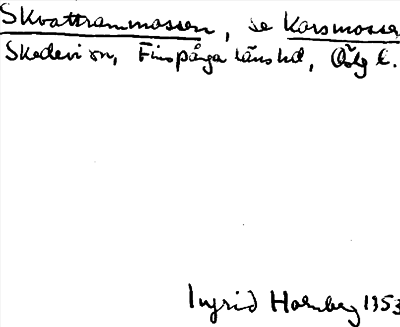 Skvattrammossen, se Korsmosse
Skedevi sn, Finspånga läns hd, Östg l.
Ingrid Holmberg 1953